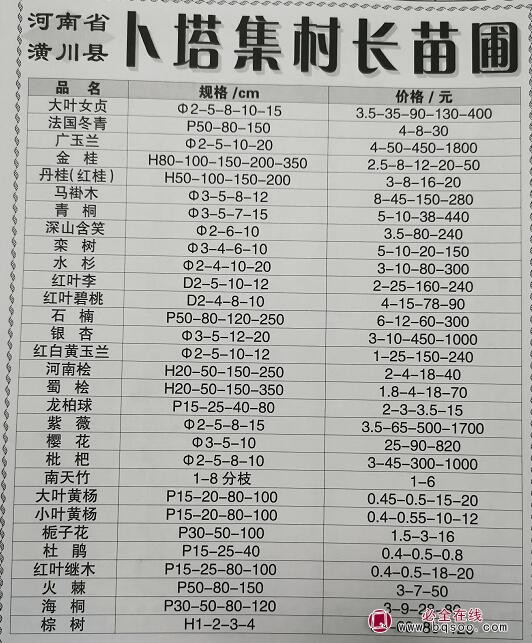 河南省
潢川县
卜塔集村长苗圃
品 名 规格/cm 价格/元
大叶女贞 Φ2-5-8-10-15 3.5-35-90-130-400
法国冬青 P50-80-150 4-8-30
广玉兰 Φ2-5-10-20 4-50-450-1800
金 桂 H80-100-150-200-350 2.5-8-12-20-50
丹桂(红桂) H50-100-150-200 3-8-16-20
马褂木 Φ3-5-8-12 8-45-150-280
青 桐 Φ3-5-7-15 5-10-38-440
深山含笑 Φ2-6-10 3.5-80-240
栾 树 Φ3-4-6-10 5-10-20-150
水 杉 Φ2-4-10-20 3-10-80-300
红叶李 D2-5-10-12 2-25-160-240
红叶碧桃 D2-4-8-10 4-15-78-90
石 楠 P50-80-120-250 6-12-60-300
银 杏 Φ3-5-12-20 3-10-450-1000
红白黄玉兰 Φ2-5-10-12 1-25-150-240
河南桧 H20-50-150-250 2-4-18-40
蜀 桧 H20-50-150-350 1.8-4-18-70
龙柏球 P15-25-40-80 2-3-3.5-15
紫 薇 Φ2-5-8-15 3.5-65-500-1700
樱 花 Φ3-5-10 25-90-820
枇 杷 Φ2-5-8-10 3-45-300-1000
南天竹 1-8分枝 1-6
大叶黄杨 P15-20-80-100 0.45-0.5-15-20
小叶黄杨 P15-20-80-100 0.4-0.55-10-12
栀子花 P30-50-100 1.5-3-16
杜 鹃 P15-25-40 0.4-0.5-0.8
红叶继木 P15-25-80-100 0.4-0.5-18-20
火 棘 P50-80-150 3-7-50
海 桐 P30-50-80-120 3-9-28-80
棕 树 H1-2-3-4
必全在线
www.bqsoo.com